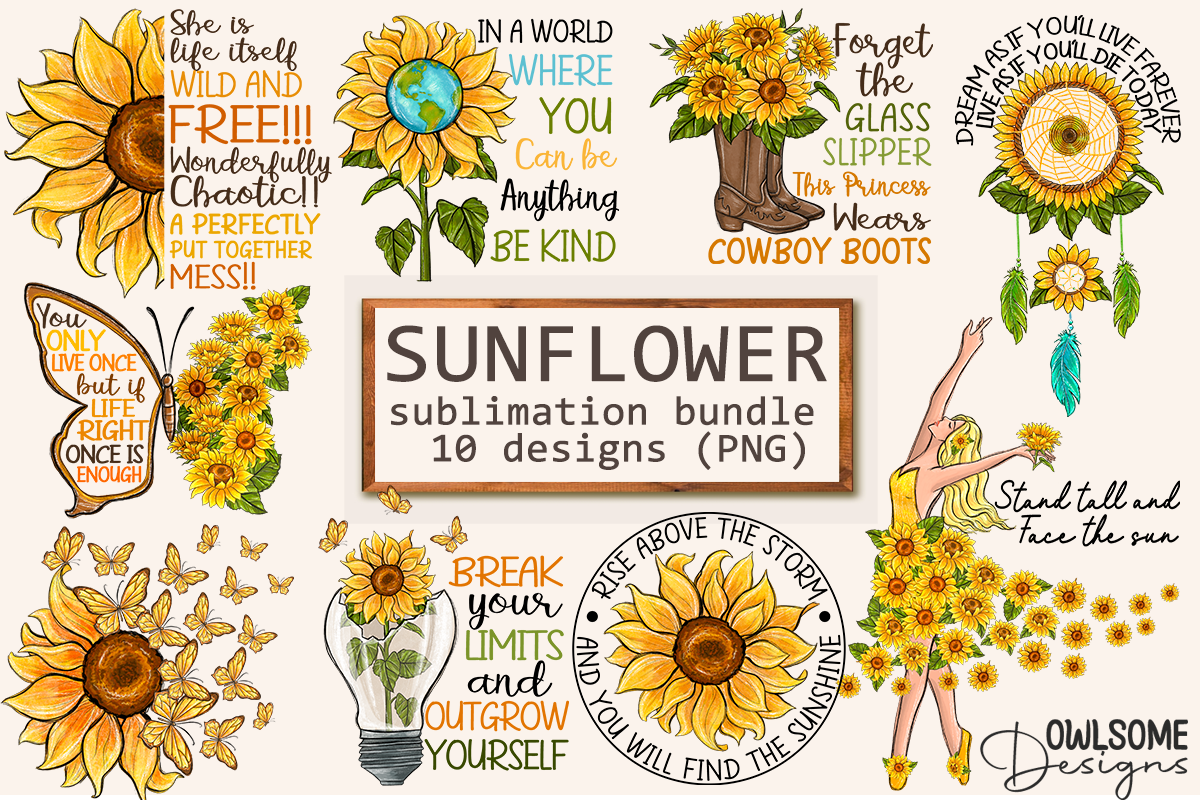 She is
life itself
WILD AND
FREE!!!
Wonderfully
Chaotic!!
A PERFECTLY
PUT TOGETHER
MESS!!
IN A WORLD
WHERE
YOU
Can be
Anything
BE KIND
Forget
the
GLASS
SLIPPER
This Princess
Wears
COWBOY BOOTS
DREAM AS IF YOU'LL LIVE FAREVER
LIVE AS IF YOU'LL DIE TODAY
You
ONLY
LIVE ONCE
but if
LIFE
RIGHT
ONCE IS
ENOUGH
SUNFLOWER
sublimation bundle
10 designs (PNG)
Stand tall and
Face the sun
BREAK
your
LIMITS
and
OUTGROW
YOURSELF
RISE ABOVE THE STORM
AND YOU WILL FIND THE SUNSHINE
OWLSOME
Designs